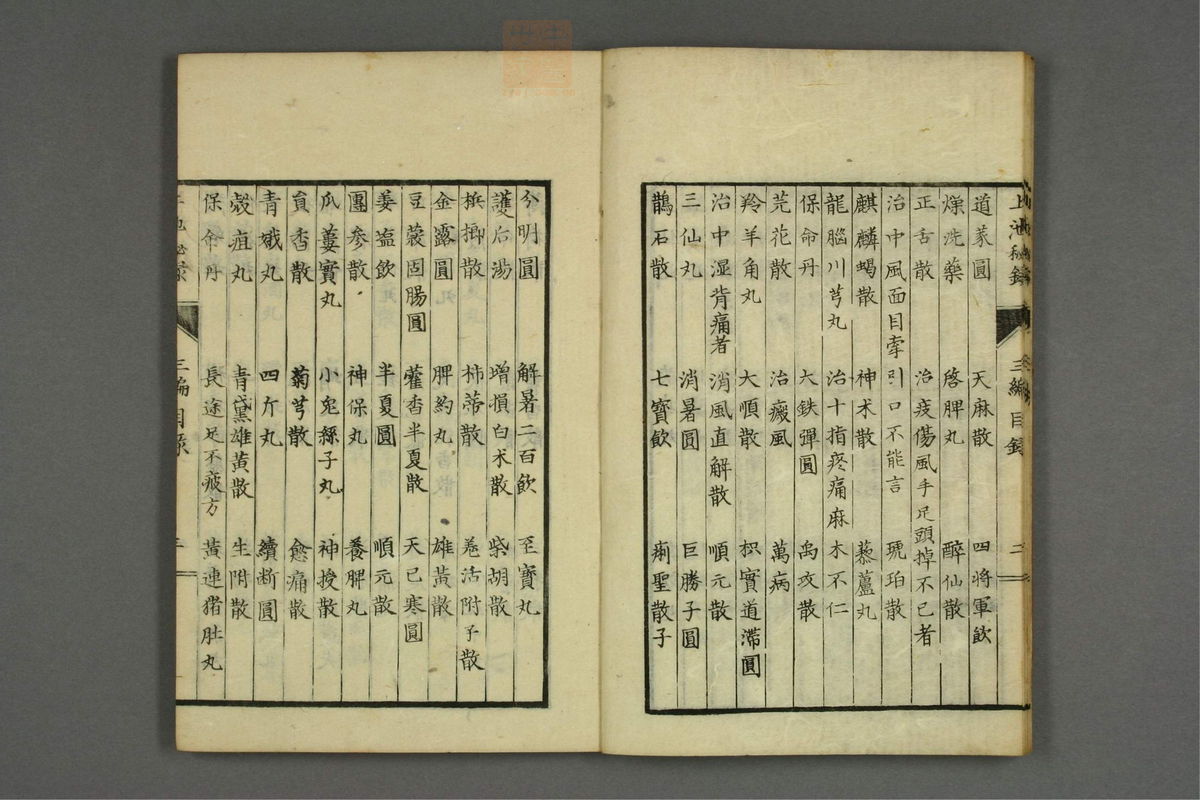 道蒙圓　天麻散　四將軍飲
燥洗藥　啓脾丸　醉仙散
正舌散　治疫傷風手足頭掉不已者
治中風面目牽引口不能言　琥珀散
麒麟蝎散　神朮散　藜蘆丸
龍腦川芎丸　治十指疼痛麻木不仁
保命丹　大鉄彈圓　禹攻散
芫花散　治癜風　萬病
羚羊角丸　大順散　枳實道滯圓
治中湿背痛者　消風直解散　順元散
三仙丸　消暑圓　巨勝子圓
鵲石散　七寳飲　痢聖散子
上池秘錄　三編目錄　二
分明圓　解暑二百飲　至寳丸
護后湯　增損白朮散　柴胡散
檳榔散　柿蒂散　羗活附子散
金露圓　脾約丸　雄黃散
豆蔲固腸圓　藿香半夏散　天已寒圓
姜盐飲　半夏圓　順元散
團參散　神保丸　養脾丸
瓜蔞實丸　小兔絲子丸　神授散
茴香散　菊芎散　愈痛散
青娥丸　四斤丸　續断圓
穀疽丸　青黛雄黃散　生附散
保命丹　長途足不疲方　黃連猪肚丸
三編目錄